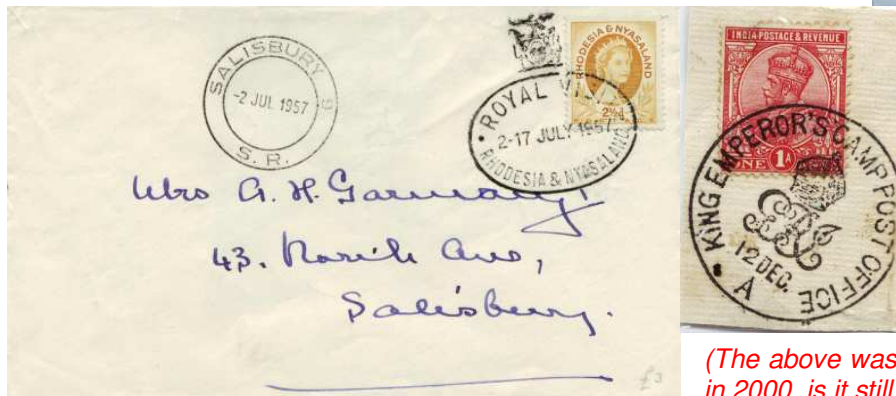 SALISBURY 9
-2 JUL 1957
S. R.
RHODESIA & NYASALAND
2½d
ROYAL VISIT
2-17 JULY 1957
RHODESIA & NYASALAND
Mrs A. H.
43.
Salisbury.
£3
INDIA POSTAGE & REVENUE
ONE 1A
KING EMPEROR'S CAMP POST OFFICE
12 DEC.
A
(The above was
in 2000, is it still